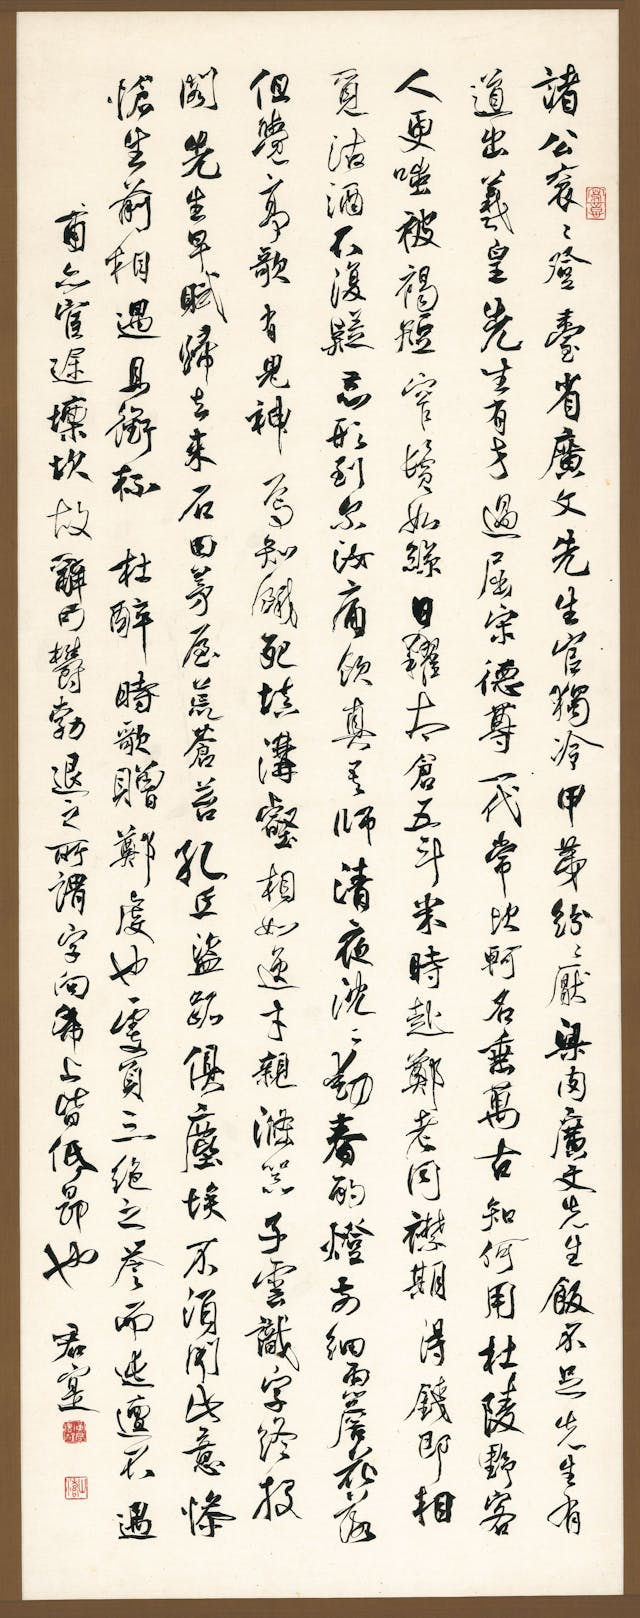 諸公袞〻登臺省廣文先生官獨冷甲第紛〻厭粱肉廣文先生飯不足先生有
道出羲皇先生有才過屈宋德尊一代常坎軻名垂萬古知何用杜陵野客
人更嗤被褐短窄鬢如絲日糴太倉五斗米時赴鄭老同襟期得錢即相
覓沽酒不復疑忘形到尔汝痛飲真吾師清夜沈〻動春酌燈前細雨簷花落
但覺高歌有鬼神焉知餓死填溝壑相如逸才親滌器子雲識字終投
閣先生早賦歸去來石田茅屋荒蒼苔孔丘盜跖俱塵埃不須聞此意慘
愴生前相遇且銜杯 杜醉時歌贈鄭虔也虔負三絕之譽而迍邅不遇
甫亦官遲壈坎故辭句鬱勃退之所謂字向紙上皆低昂也 君寔